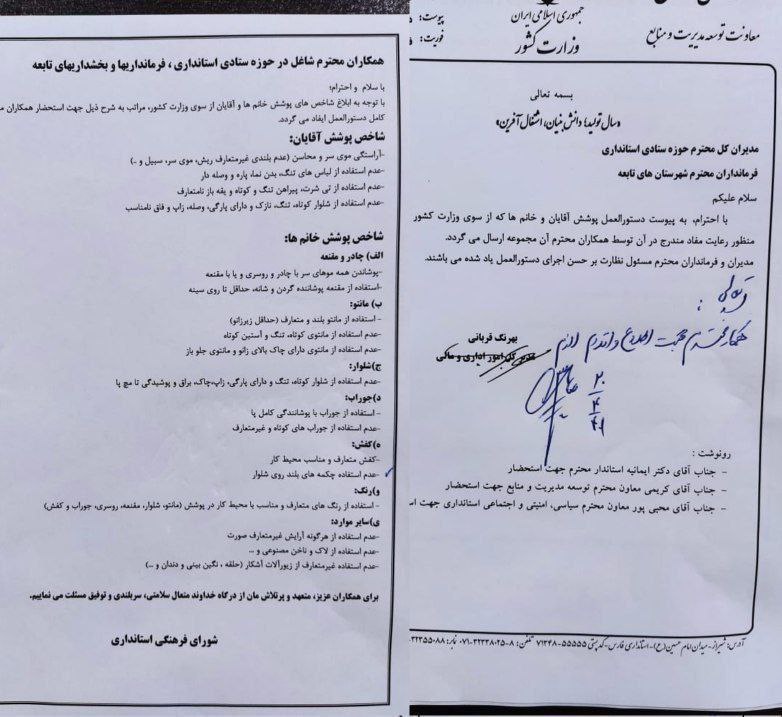 جمهوری اسلامی ایران
وزارت کشور
معاونت توسعه مدیریت و منابع
پیوست:
فوریت:
بسمه تعالی
«سال تولید؛ دانش بنیان، اشتغال آفرین»
مدیران کل محترم حوزه ستادی استانداری
فرمانداران محترم شهرستان های تابعه
سلام علیکم
با احترام، به پیوست دستورالعمل پوشش آقایان و خانم ها که از سوی وزارت کشور
منظور رعایت مفاد مندرج در آن توسط همکاران محترم آن مجموعه ارسال می گردد.
مدیران و فرمانداران محترم مسئول نظارت بر حسن اجرای دستورالعمل یاد شده می باشند.
بهرنگ قربانی
مدیر کل امور اداری و مالی
همکار محترم جهت اطلاع و اقدام لازم
رونوشت :
- جناب آقای دکتر ایمانیه استاندار محترم جهت استحضار
- جناب آقای کریمی معاون محترم توسعه مدیریت و منابع جهت استحضار
- جناب آقای محبی پور معاون محترم سیاسی، امنیتی و اجتماعی استانداری جهت اس
آدرس: شیراز - میدان امام حسین (ع) - استانداری فارس - کدپستی ۵۵۵۵۵-۷۱۳۴۸ تلفن: ۸-۳۲۲۳۸۰۲۵-۰۷۱ نمابر: ۳۲۳۵۵۰۸۸-
همکاران محترم شاغل در حوزه ستادی استانداری ، فرمانداریها و بخشداریهای تابعه
با سلام و احترام؛
با توجه به ابلاغ شاخص های پوشش خانم ها و آقایان از سوی وزارت کشور، مراتب به شرح ذیل جهت استحضار همکاران م
کامل دستورالعمل ایفاد می گردد.
شاخص پوشش آقایان:
-آراستگی موی سر و محاسن (عدم بلندی غیرمتعارف ریش، موی سر، سبیل و ..)
-عدم استفاده از لباس های تنگ، بدن نما، پاره و وصله دار
-عدم استفاده از تی شرت، پیراهن تنگ و کوتاه و یقه باز نامتعارف
-عدم استفاده از شلوار کوتاه، تنگ، نازک و دارای پارگی، وصله، زاپ و فاق نامناسب
شاخص پوشش خانم ها:
الف) چادر و مقنعه
-پوشاندن همه موهای سر با چادر و روسری و یا با مقنعه
-استفاده از مقنعه پوشاننده گردن و شانه، حداقل تا روی سینه
ب) مانتو:
- استفاده از مانتو بلند و متعارف (حداقل زیرزانو)
-عدم استفاده از مانتوی کوتاه، تنگ و آستین کوتاه
-عدم استفاده از مانتوی دارای چاک بالای زانو و مانتوی جلو باز
ج)شلوار:
-عدم استفاده از شلوار کوتاه، تنگ و دارای پارگی، زاپ،چاک، براق و پوشیدگی تا مچ پا
د)جوراب:
- استفاده از جوراب با پوشانندگی کامل پا
-عدم استفاده از جوراب های کوتاه و غیرمتعارف
ه)کفش:
-کفش متعارف و مناسب محیط کار
-عدم استفاده چکمه های بلند روی شلوار
و)رنگ:
- استفاده از رنگ های متعارف و مناسب با محیط کار در پوشش (مانتو، شلوار، مقنعه، روسری، جوراب و کفش)
ی)سایر موارد:
-عدم استفاده از هرگونه آرایش غیرمتعارف صورت
-عدم استفاده از لاک و ناخن مصنوعی و ...
-عدم استفاده غیرمتعارف از زیورآلات آشکار (حلقه ، نگین بینی و دندان و ...)
برای همکاران عزیز، متعهد و پرتلاش مان از درگاه خداوند متعال سلامتی، سربلندی و توفیق مسئلت می نماییم.
شورای فرهنگی استانداری